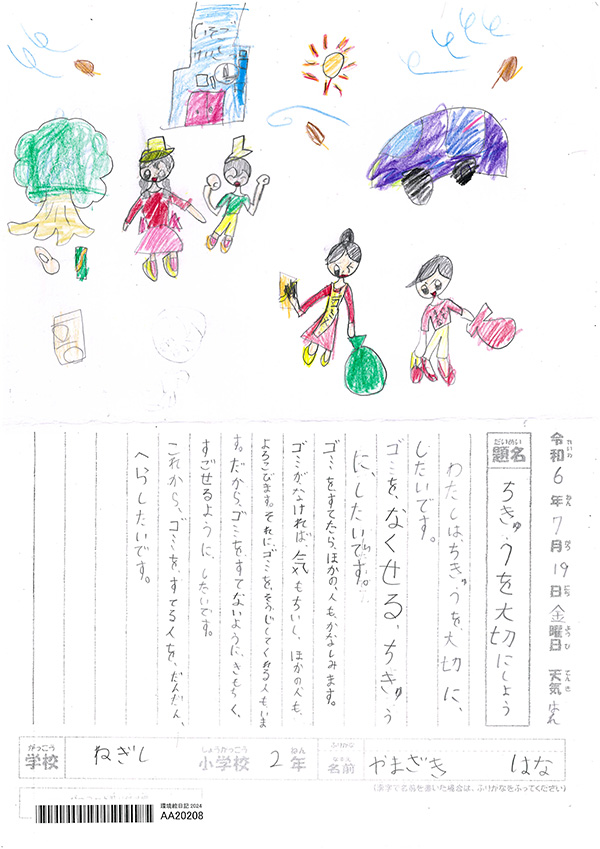 令和6年7月19日金曜日 天気 はれ
題名 ちきゅうを大切にしよう
わたしは、ちきゅうを、大切に、
したいです。
ゴミを、なくせる、ちきゅう
に、したいです。
ゴミをすてたら、ほかの、人も、かなしみます。
ゴミが、なければ、気もちいし、ほかの人も、
よろこびます。それに、ゴミを、そうじしてくれる人もいま
す。だから、ゴミをすてないように、きもちく、
すごせるように、したいです。
これから、ゴミを、すてる人を、だんだん、
へらしたいです。
学校 ねぎし 小学校 2年 名前 やまざき はな
(漢字で名前を書いた場合は、ふりがなをふってください)
環境絵日記 2024
AA20208